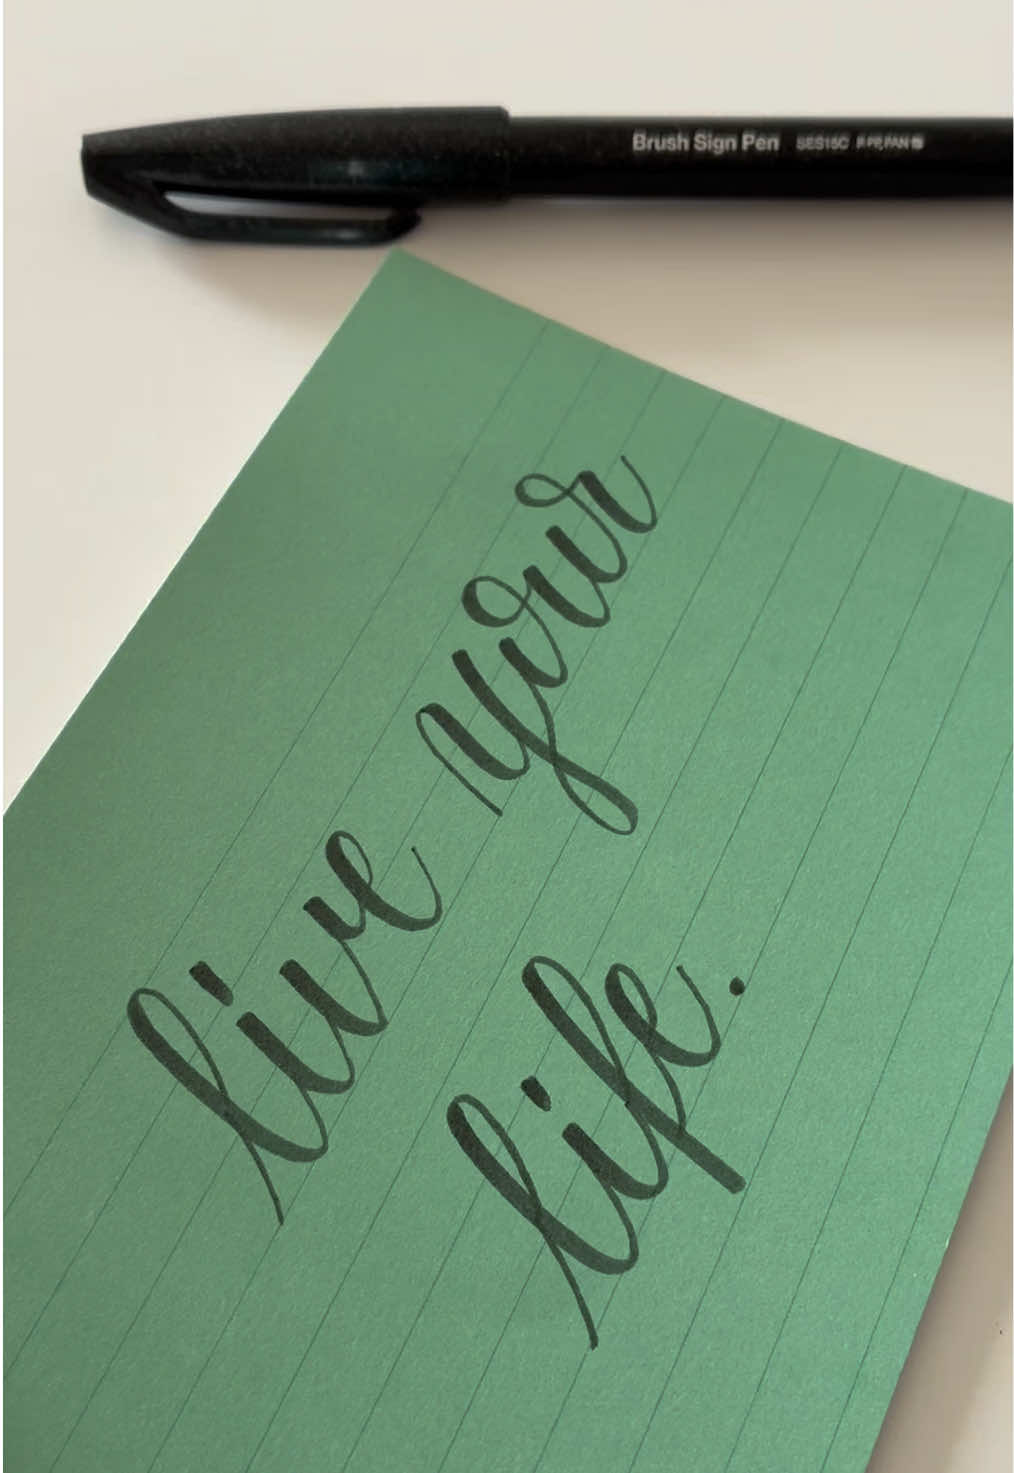 Brush Sign Pen SES15C
live your
life.